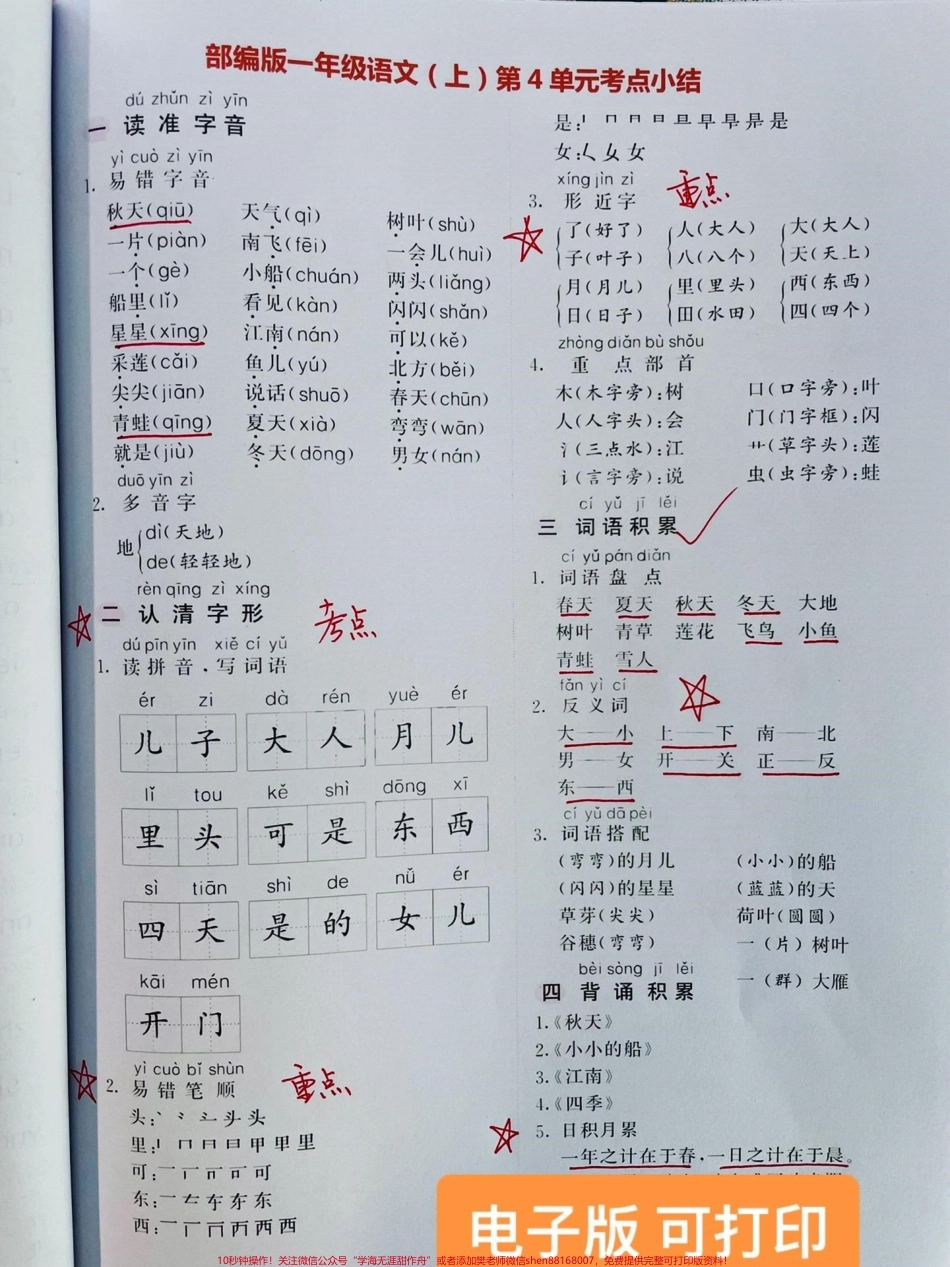 部编版一年级语文(上)第4单元考点小结
dú zhǔn zì yīn
一 读准字音
yì cuò zì yīn
1. 易错字音
秋天(qiū) 天气(qì) 树叶(shù)
一片(piàn) 南飞(fēi) 一会儿(huì)
一个(gè) 小船(chuán) 两头(liǎng)
船里(lǐ) 看见(kàn) 闪闪(shǎn)
星星(xīng) 江南(nán) 可以(kě)
采莲(cǎi) 鱼儿(yú) 北方(běi)
尖尖(jiān) 说话(shuō) 春天(chūn)
青蛙(qīng) 夏天(xià) 弯弯(wān)
就是(jiù) 冬天(dōng) 男女(nán)
duō yīn zì
2. 多音字
地
dì(天地)
de(轻轻地)
rèn qīng zì xíng
二 认清字形
考点
dú pīn yīn xiě cí yǔ
1. 读拼音,写词语
ér zi dà rén yuè ér
儿子 大人 月儿
lǐ tou kě shì dōng xī
里头 可是 东西
sì tiān shì de nǚ ér
四天 是的 女儿
kāi mén
开门
yì cuò bǐ shùn
2. 易错笔顺
重点
头:
里:
可:
东:
西:
是:
女:
xíng jìn zì
3. 形近字
重点
了(好了) 人(大人) 大(大人)
子(叶子) 八(八个) 天(天上)
月(月儿) 里(里头) 西(东西)
日(日子) 田(水田) 四(四个)
zhòng diǎn bù shǒu
4. 重点部首
木(木字旁):树 口(口字旁):叶
人(人字头):会 门(门字框):闪
氵(三点水):江 艹(草字头):莲
讠(言字旁):说 虫(虫字旁):蛙
cí yǔ jī lěi
三 词语积累
cí yǔ pán diǎn
1. 词语盘点
春天 夏天 秋天 冬天 大地
树叶 青草 莲花 飞鸟 小鱼
青蛙 雪人
fǎn yì cí
2. 反义词
大——小 上——下 南——北
男——女 开——关 正——反
东——西
cí yǔ dā pèi
3. 词语搭配
(弯弯)的月儿 (小小)的船
(闪闪)的星星 (蓝蓝)的天
草芽(尖尖) 荷叶(圆圆)
谷穗(弯弯) 一(片)树叶
一(群)大雁
bèi sòng jī lěi
四 背诵积累
1.《秋天》
2.《小小的船》
3.《江南》
4.《四季》
5. 日积月累
一年之计在于春,一日之计在于晨。
电子版 可打印
10秒钟操作!关注微信公众号“学海无涯甜作舟”或者添加樊老师微信shen88168007,免费提供完整可打印版资料!